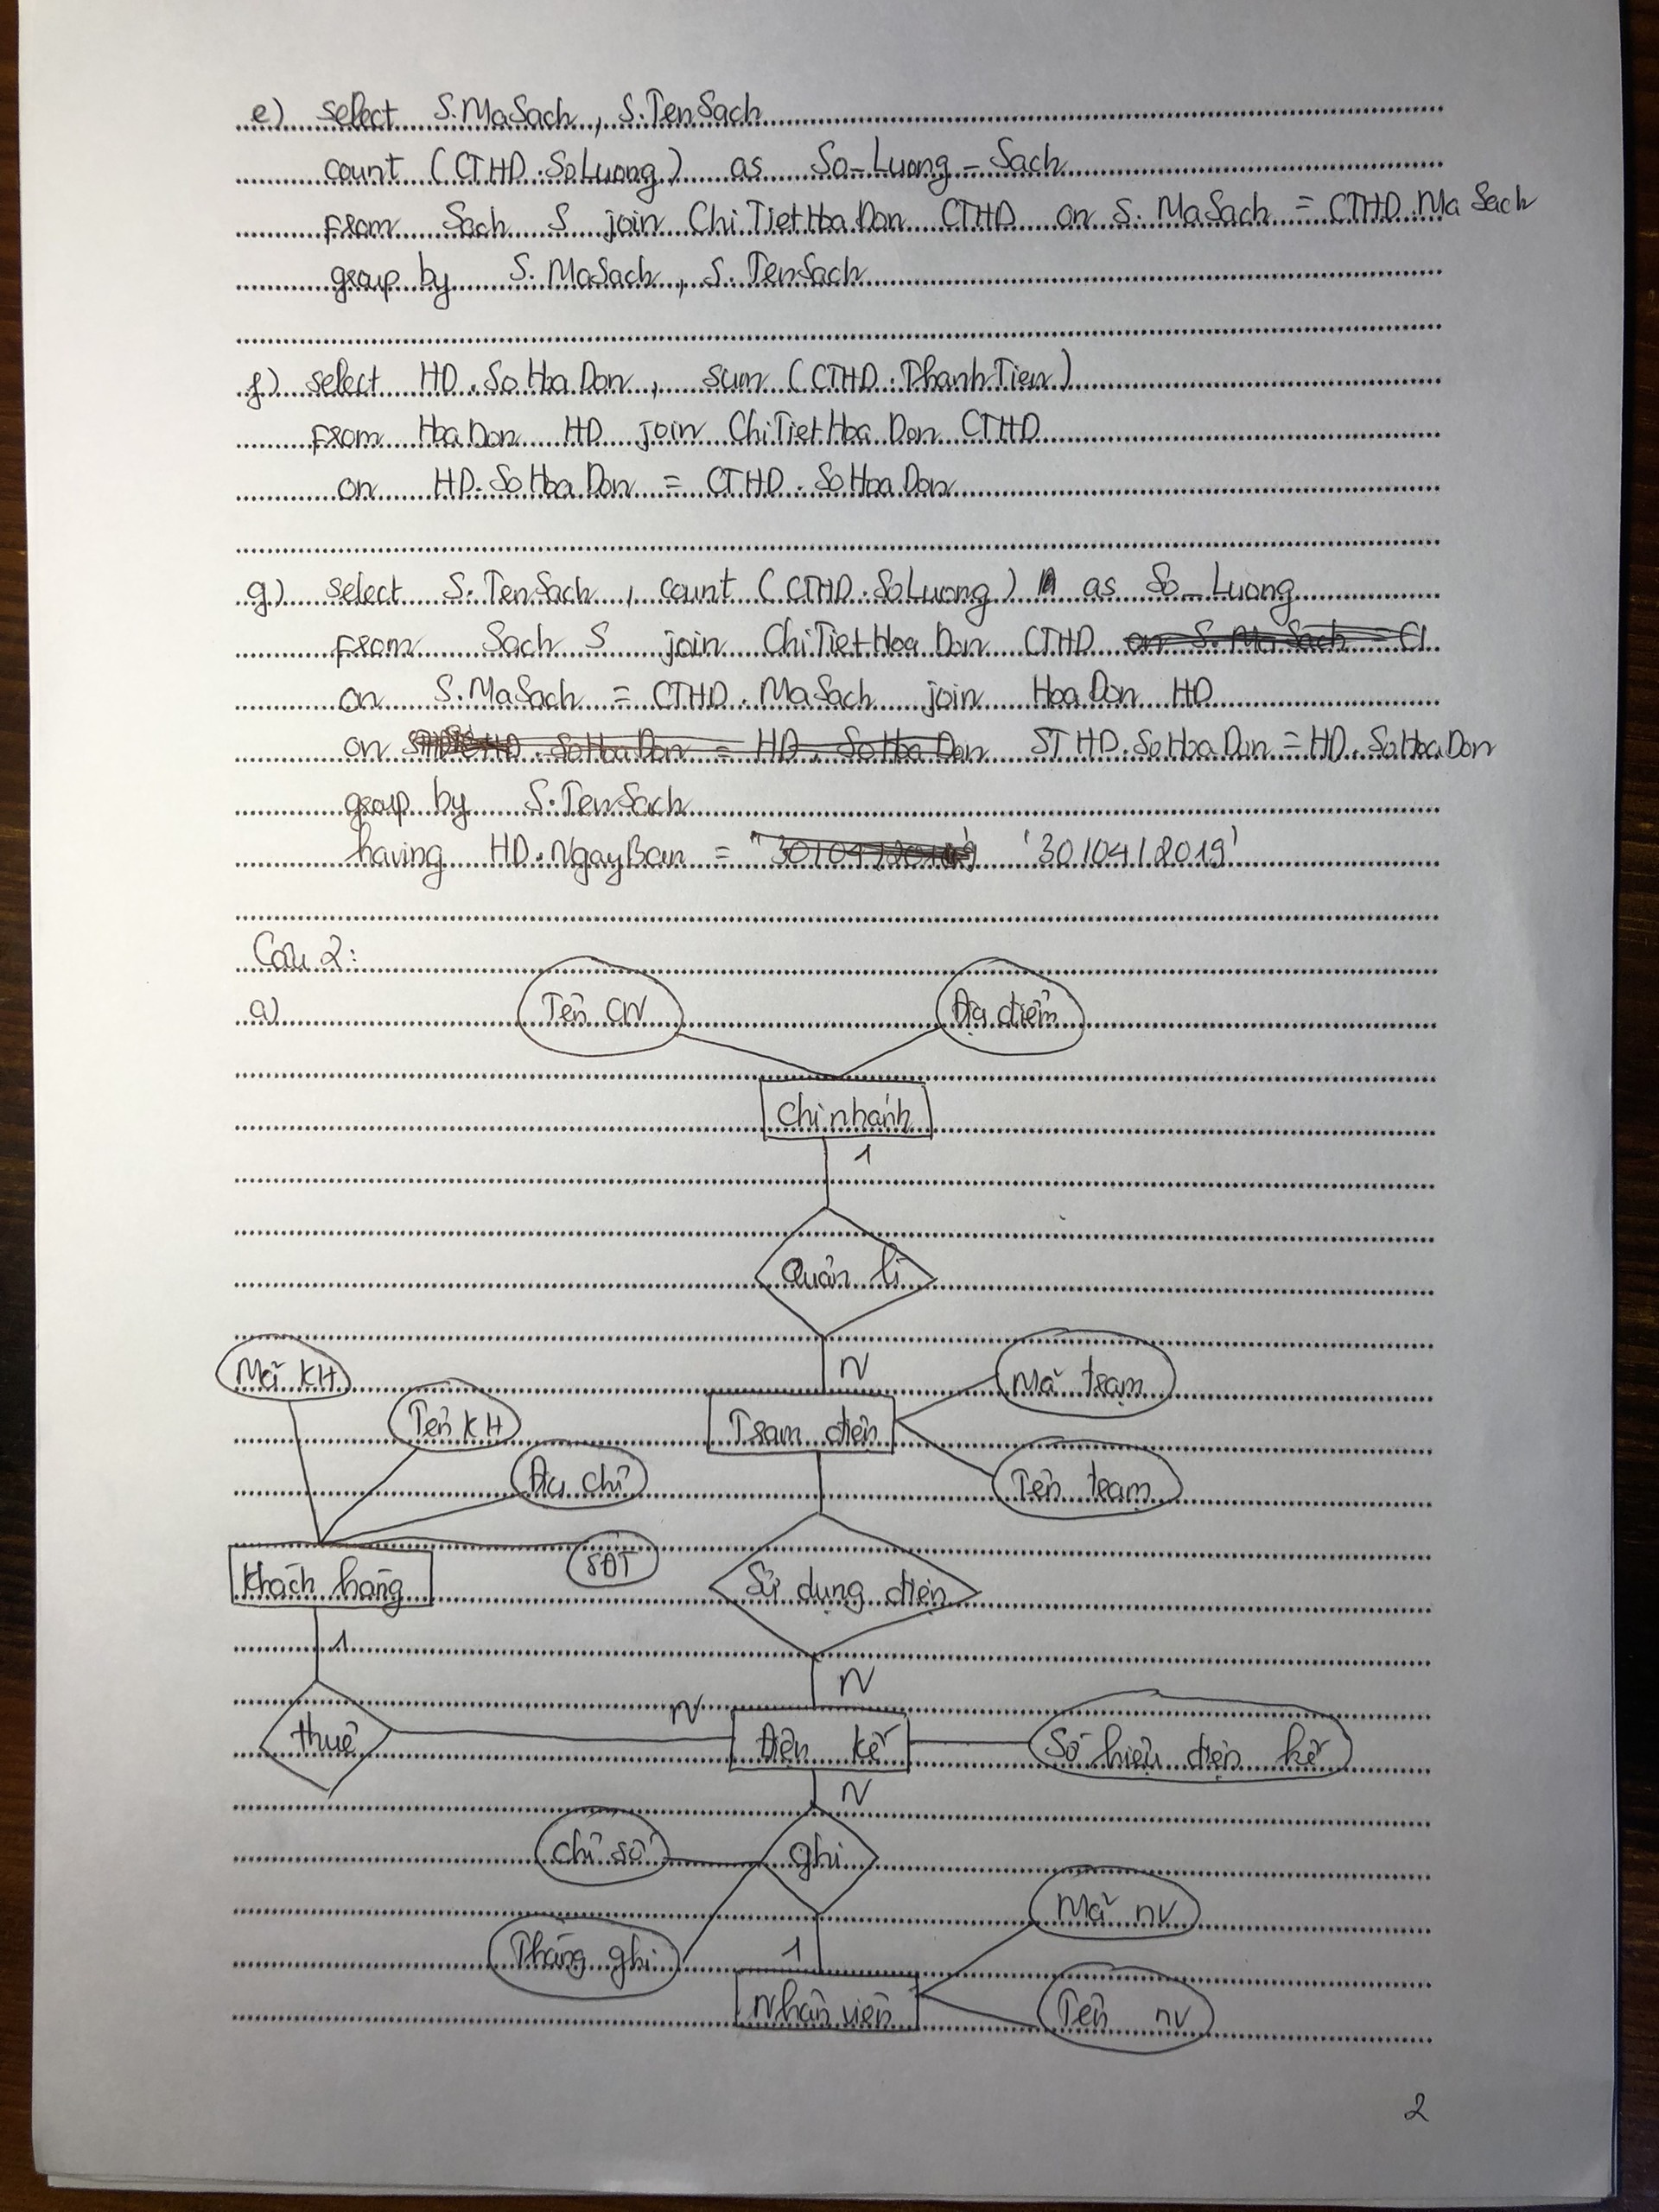 e) select S.MaSach, S.TenSach
count (CTHD.SoLuong) as So_Luong_Sach
from Sach S join ChiTietHoaDon CTHD on S.MaSach = CTHD.MaSach
group by S.MaSach, S.TenSach
f) select HD.SoHoaDon, sum (CTHD.ThanhTien)
from HoaDon HD join ChiTietHoaDon CTHD
on HD.SoHoaDon = CTHD.SoHoaDon
g) select S.TenSach, count (CTHD.SoLuong) as So_Luong
from Sach S join ChiTietHoaDon CTHD
on S.MaSach = CTHD.MaSach join HoaDon HD
on STHD.SoHoaDon = HD.SoHoaDon
group by S.TenSach
having HD.NgayBan = '30/04/2019'
Câu 2:
a) Tên CN Địa điểm
Chi nhánh
1
Quản lí
N
Mã KH
Mã trạm
Tên KH
Trạm điện
Địa chỉ
Tên trạm
SĐT
Khách hàng
Sử dụng điện
1
N
N
thuê
Điện kế
Số hiệu điện kế
N
chỉ số
ghi
Mã nv
Tháng ghi
1
Nhân viên
Tên nv
2